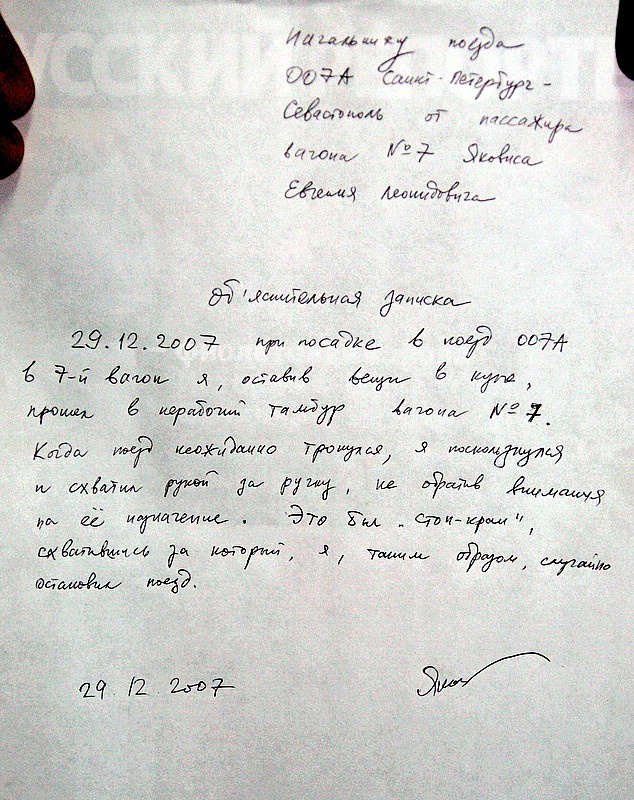 Начальнику поезда
007А Санкт-Петербург -
Севастополь от пассажира
вагона №7 Яковиса
Евгения Леонидовича
Об'яснительная записка
29.12.2007 при посадке в поезд 007А
в 7-й вагон я, оставив вещи в купе,
прошел в нерабочий тамбур вагона №7.
Когда поезд неожиданно тронулся, я поскользнулся
и схватил рукой за ручку, не обратив внимания
на её назначение. Это был „стоп-кран",
схватившись за который, я, таким образом, случайно
остановил поезд.
29.12.2007